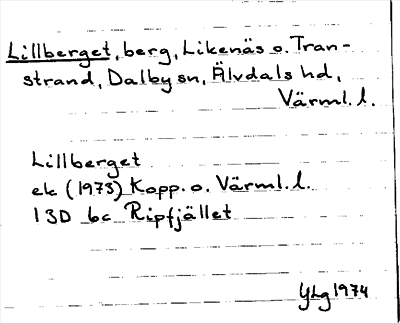 Lillberget, berg, Likenäs o. Tran-
strand, Dalby sn, Älvdals hd,
Värml. l.
Lillberget
ek (1973) Kopp. o. Värml. l.
13D bc Ripfjället
YLg 1974